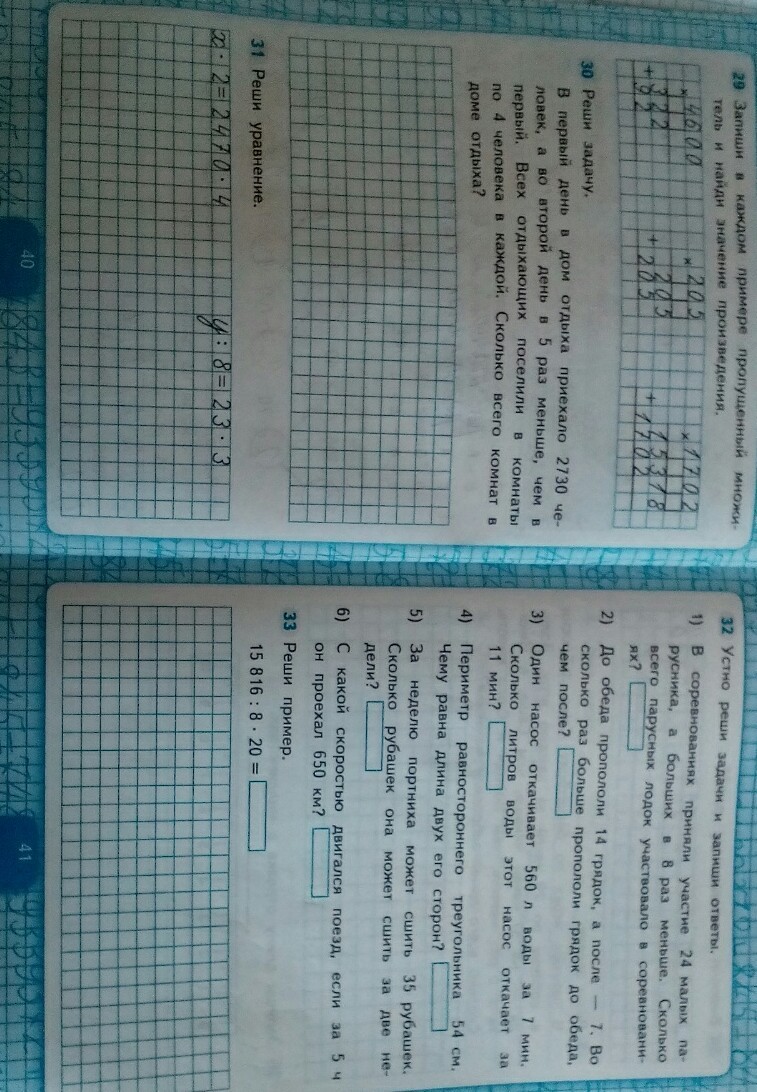 29 Запиши в каждом примере пропущенный множи-
тель и найди значение произведения.
× 4600 × 205 × 1702
+ 322 + 205 + 15318
92 205 1702
30 Реши задачу.
В первый день в дом отдыха приехало 2730 че-
ловек, а во второй день в 5 раз меньше, чем в
первый. Всех отдыхающих поселили в комнаты
по 4 человека в каждой. Сколько всего комнат в
доме отдыха?
31 Реши уравнение.
x · 2 = 2470 · 4 y : 8 = 23 · 3
40
32 Устно реши задачи и запиши ответы.
1) В соревнованиях приняли участие 24 малых па-
русника, а больших в 8 раз меньше. Сколько
всего парусных лодок участвовало в соревновани-
ях?
2) До обеда пропололи 14 грядок, а после — 7. Во
сколько раз больше пропололи грядок до обеда,
чем после?
3) Один насос откачивает 560 л воды за 7 мин.
Сколько литров воды этот насос откачает за
11 мин?
4) Периметр равностороннего треугольника 54 см.
Чему равна длина двух его сторон?
5) За неделю портниха может сшить 35 рубашек.
Сколько рубашек она может сшить за две не-
дели?
6) С какой скоростью двигался поезд, если за 5 ч
он проехал 650 км?
33 Реши пример.
15 816 : 8 · 20 =
41